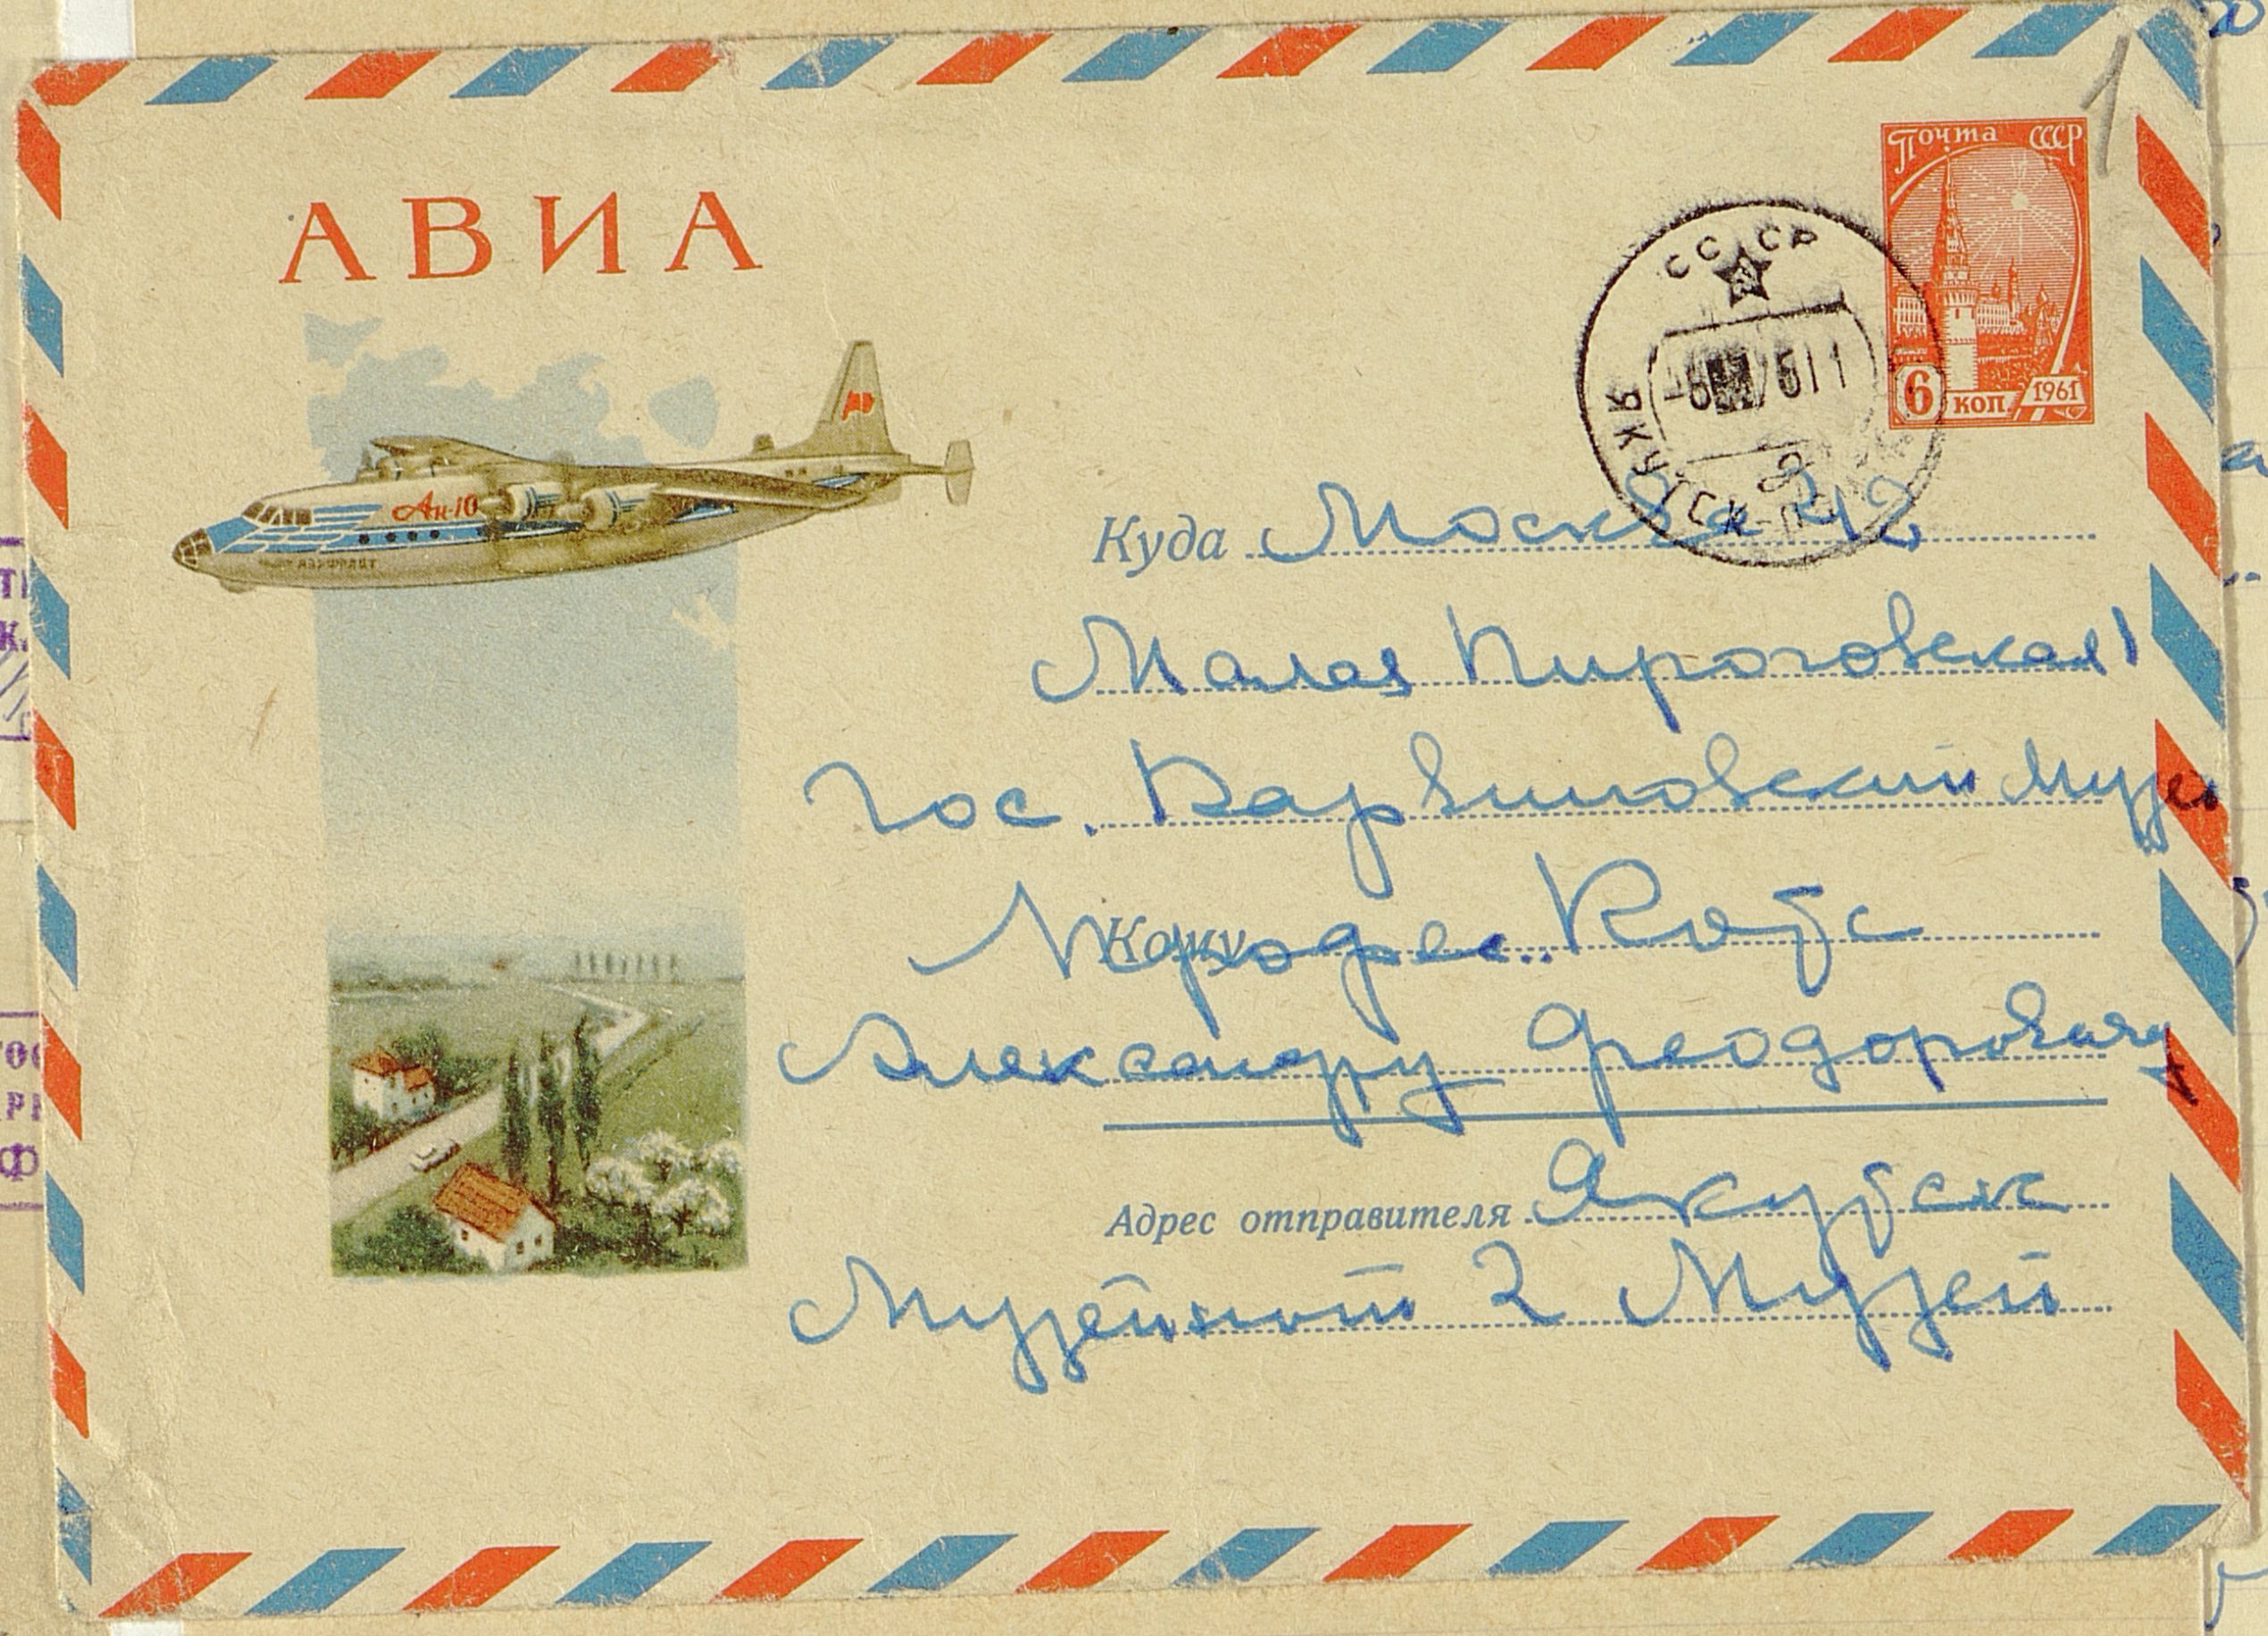 АВИА
Почта СССР
6 коп. 1961
СССР
ЯКУТСК
Ан-10
АЭРОФЛОТ
Куда Москва
Малая Пироговская 1
Гос. Дарвиновский Музей
Кому Профес. Котс
Александру Феодоровичу
Адрес отправителя Якутск
Музейный 2 Музей
1